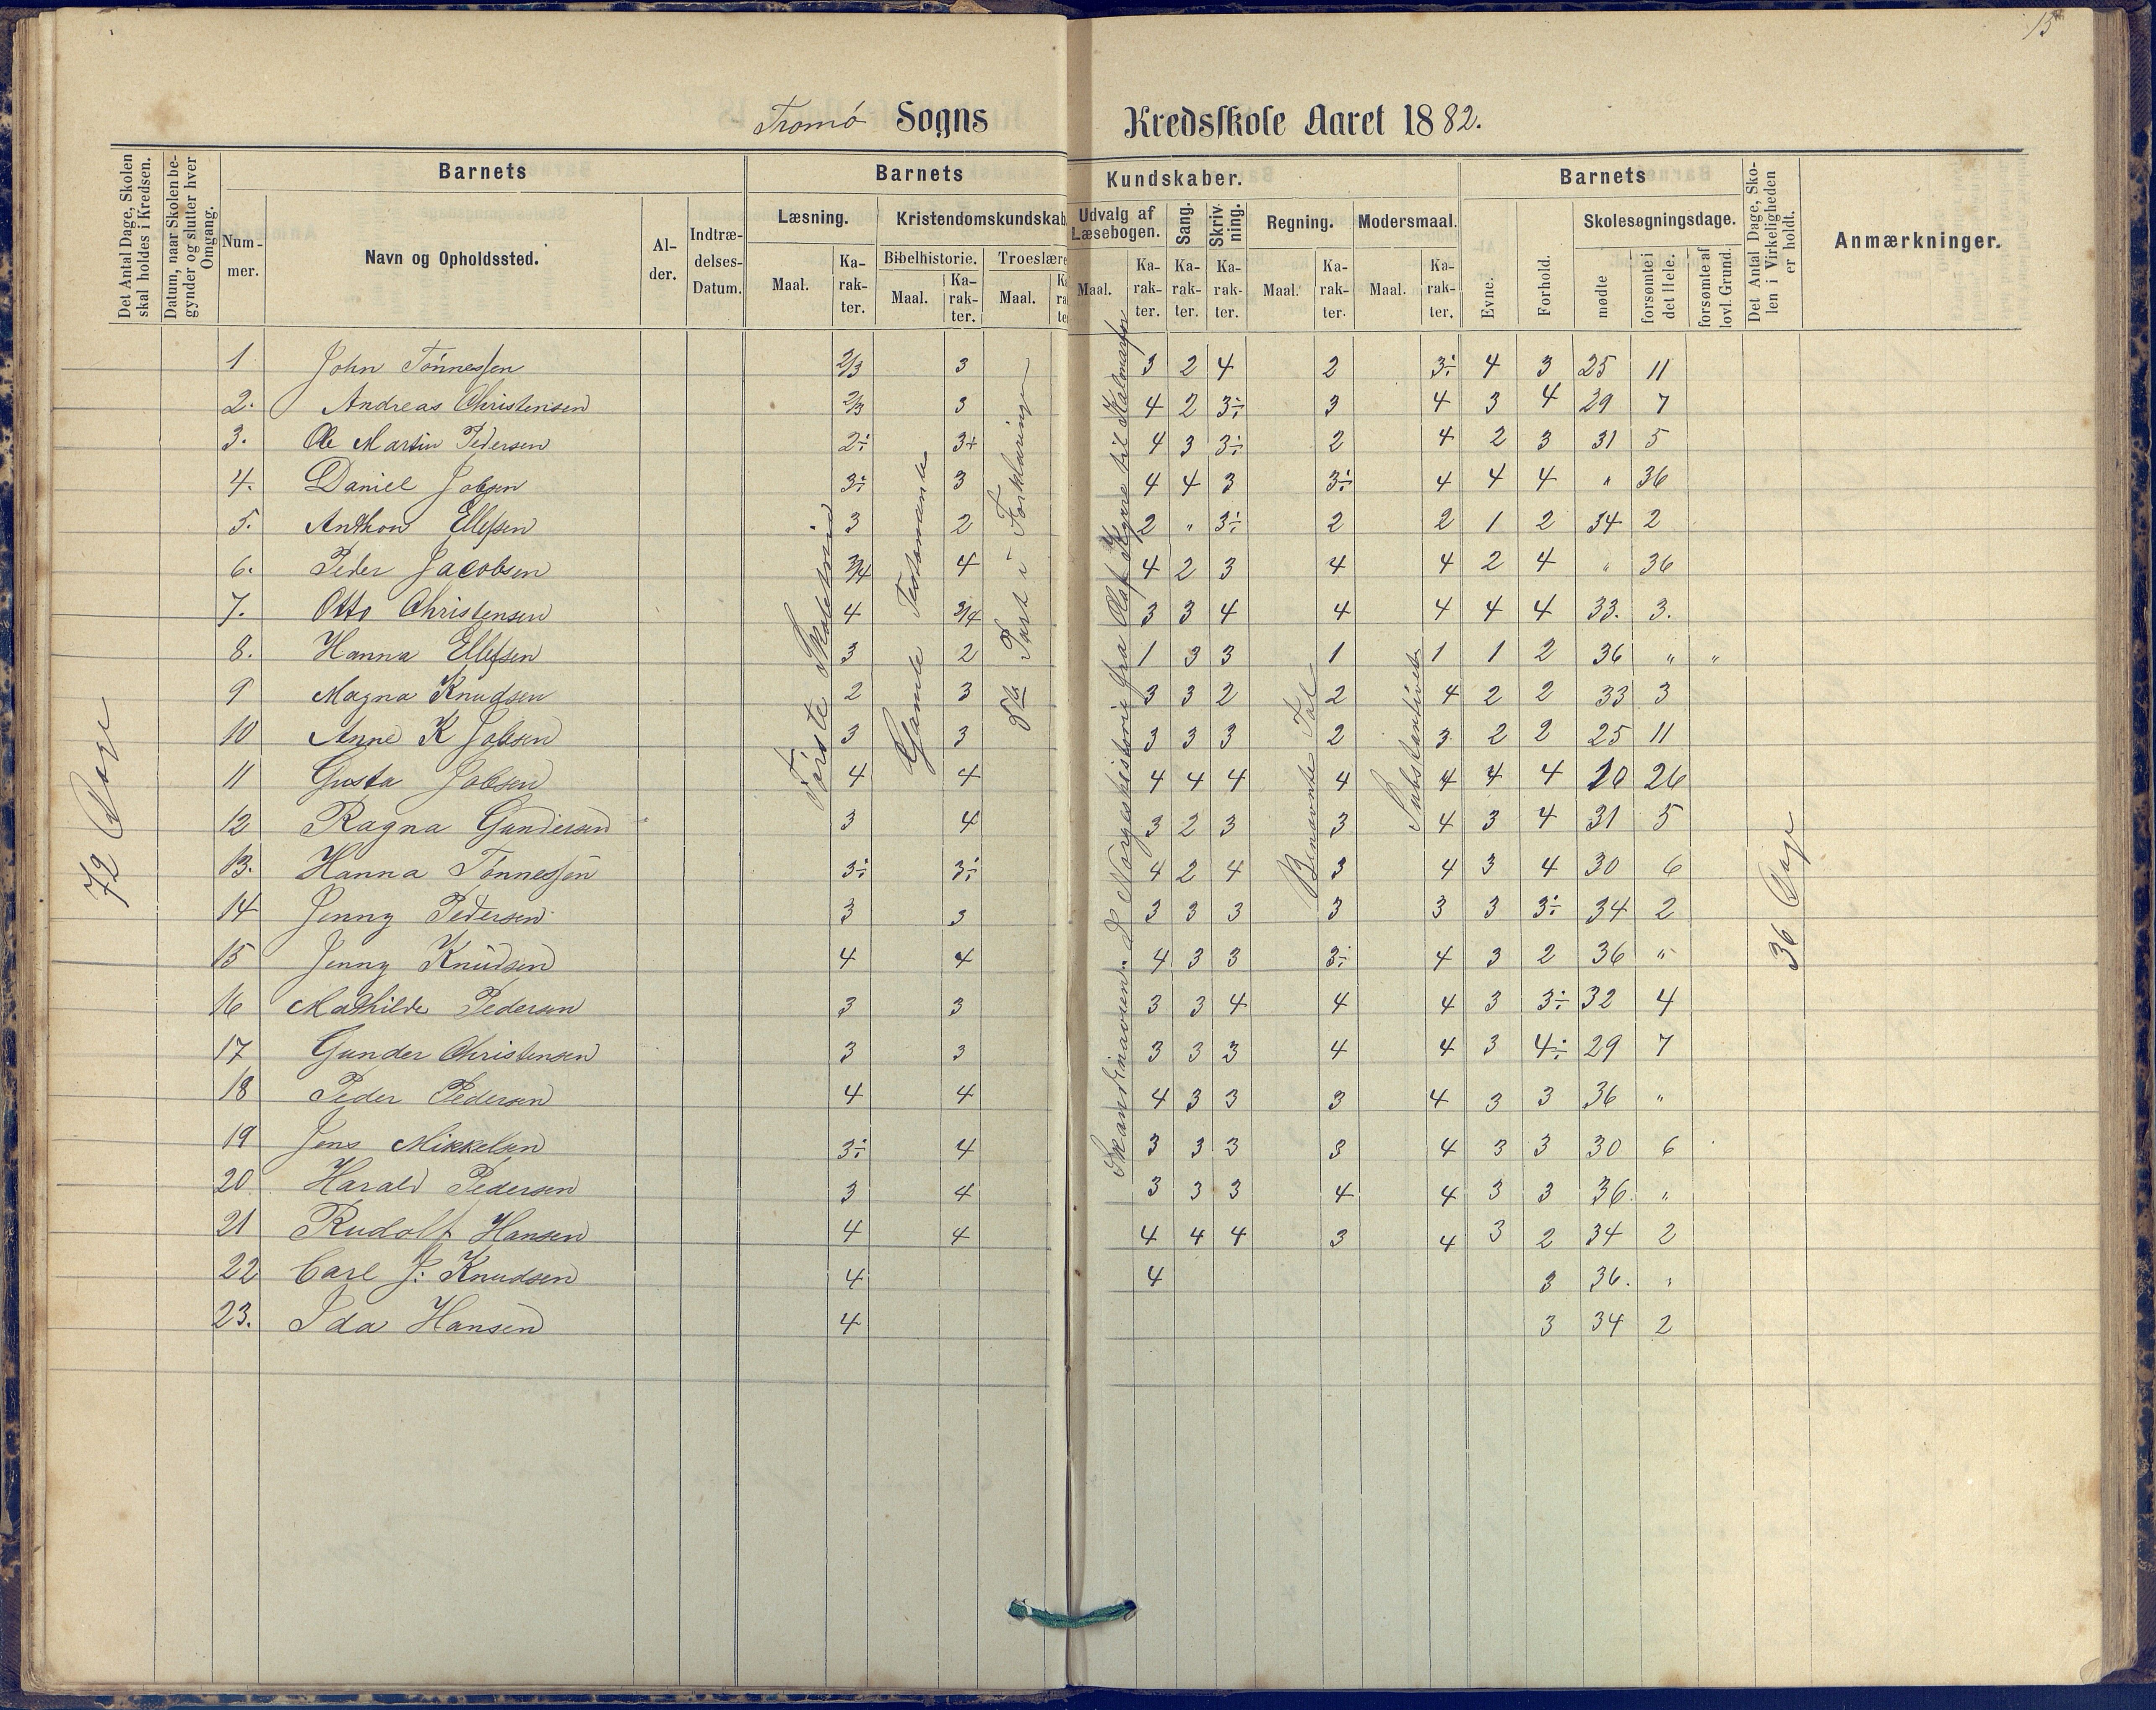 15
Tromø Sogns Kredsskole Aaret 1882.
Det Antal Dage, Skolen skal holdes i Kredsen.
Datum, naar Skolen begynder og slutter hver Omgang.
Barnets
Nummer.
Navn og Opholdssted.
Alder.
Indtrædelses-Datum.
Barnets Kundskaber.
Læsning.
Maal.
Karakter.
Kristendomskundskab
Bibelhistorie.
Maal.
Karakter.
Troeslære
Maal.
Udvalg af Læsebogen.
Maal.
Karakter.
Sang.
Karakter.
Skrivning.
Karakter.
Regning.
Maal.
Karakter.
Modersmaal.
Maal.
Karakter.
Barnets
Evne.
Forhold.
Skolesøgningsdage.
mødte
forsømte i det Hele.
forsømte af lovl. Grund.
Det Antal Dage, Skolen i Virkeligheden er holdt.
Anmærkninger.
72 Dage
Første Skoletrin
Gamle Testamente
8de Part i Forklaringen
Skandinavien. Norgeshistorie fra Olaf Kyrre til Kalmarfor
Benævnte Tal
Substantivet
36 Dage
1 John Tønnessen 2/3 3 3 2 4 2 3÷ 4 3 25 11
2. Andreas Christensen 2/3 3 4 2 3÷ 3 4 3 4 29 7
3. Ole Martin Pedersen 2÷ 3+ 4 3 3÷ 2 4 2 3 31 5
4. Daniel Jobsen 3÷ 3 4 4 3 3÷ 4 4 4 " 36
5. Anthon Ellefsen 3 2 2 " 3÷ 2 2 1 2 34 2
6. Peder Jacobsen 3/4 4 4 2 3 4 4 2 4 " 36
7. Otto Christensen 4 3/4 3 3 4 4 4 4 4 33. 3.
8. Hanna Ellefsen 3 2 1 3 3 1 1 1 2 36 " "
9 Magna Knudsen 2 3 3 3 2 2 4 2 2 33 3
10 Anne K Jobsen 3 3 3 3 3 2 3 2 2 25 11
11 Gusta Jobsen 4 4 4 4 4 4 4 4 4 10 26
12 Ragna Gundersen 3 4 3 2 3 3 4 3 4 31 5
13. Hanna Tønnessen 3÷ 3÷ 4 2 4 3 4 3 4 30 6
14 Jenny Pedersen 3 3 3 3 3 3 3 3 3÷ 34 2
15 Jenny Knudsen 4 4 4 3 3 3÷ 4 3 2 36 "
16 Mathilde Pedersen 3 3 3 3 4 4 4 3 3÷ 32 4
17 Gunder Christensen 3 3 3 3 3 4 4 3 4÷ 29 7
18 Peder Pedersen 4 4 4 3 3 3 4 3 3 36 "
19 Jens Mikkelsen 3÷ 4 3 3 3 3 4 3 3 30 6
20 Harald Pedersen 3 4 3 3 3 4 4 3 3 36. "
21 Rudolf Hansen 4 4 4 4 4 3 4 3 2 34 2
22 Carl J: Knudsen 4 4 3 36. "
23. Ida Hansen 4 3 34 2